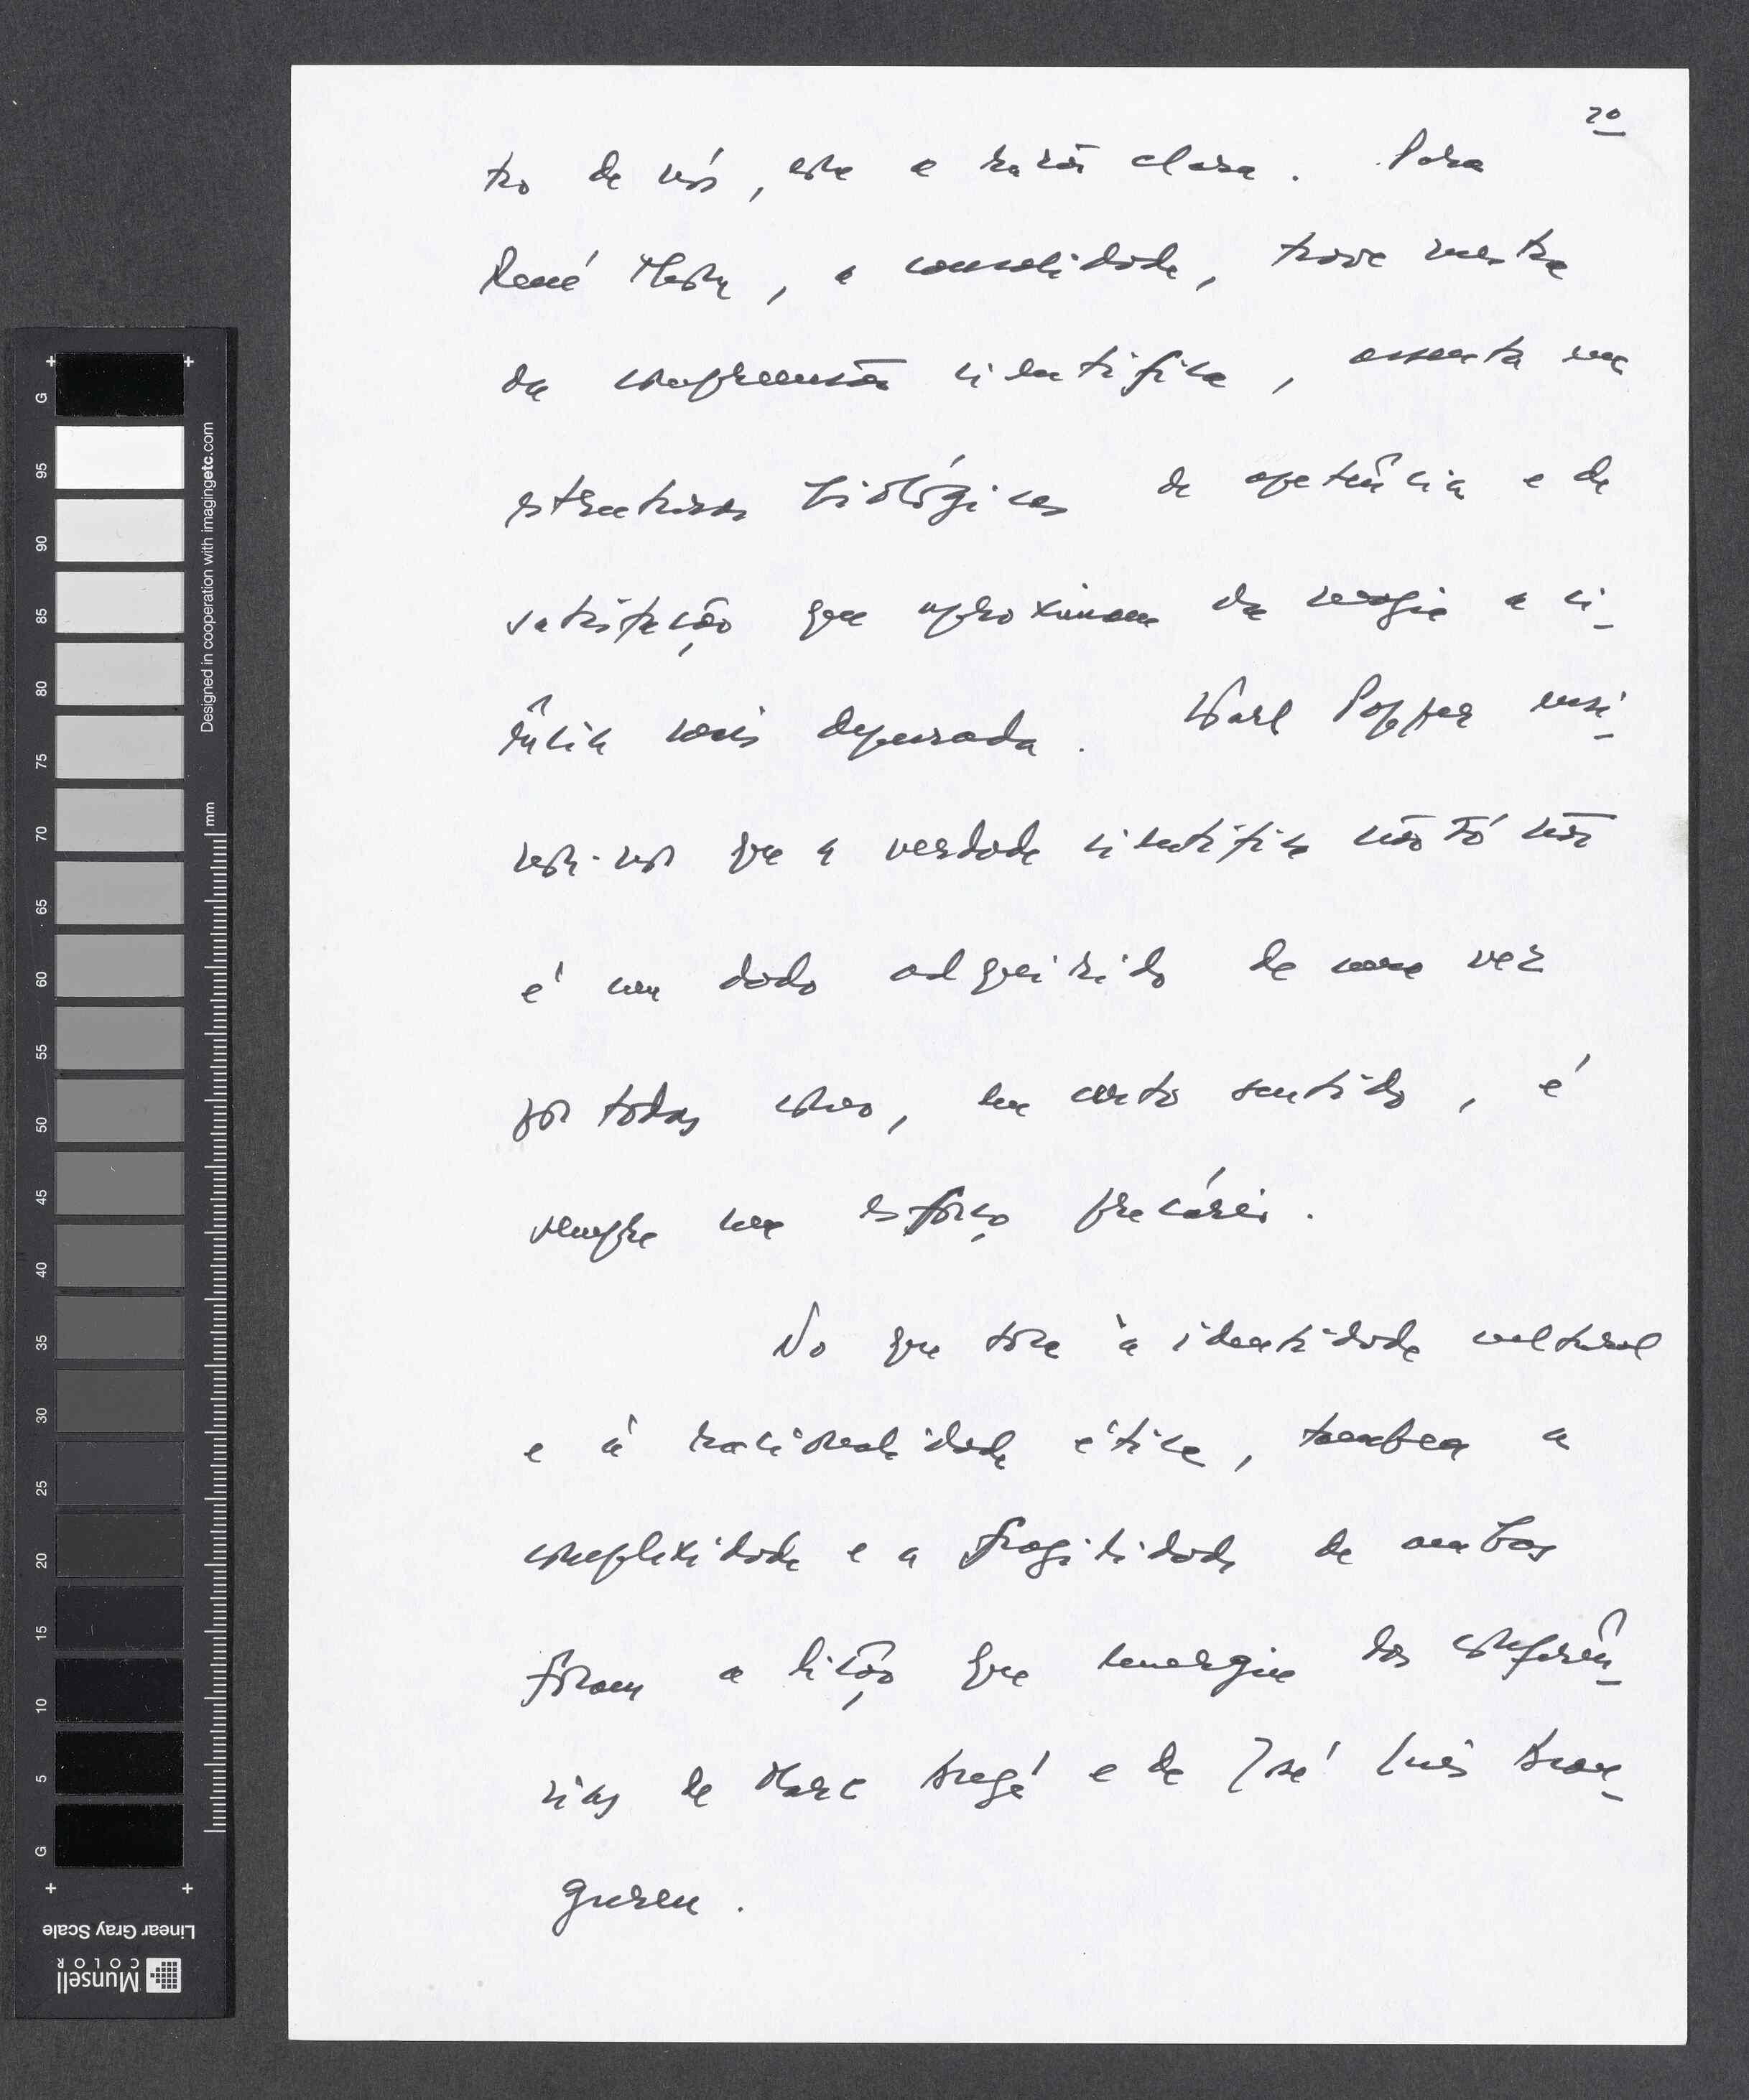 20
tro de nós, está a razão clara. Para
René Thom, a causalidade, trave mestra
da compreensão científica, assenta em
estruturas biológicas de apetência e de
satisfação que aproximam da magia a ci-
ência mais depurada. Karl Popper ensi-
nou-nos que a verdade científica não só não
é um dado adquirido de uma vez
por todas como, em certo sentido, é
sempre um esforço precário.
No que toca à identidade cultural
e à racionalidade ética, também a
complexidade e a fragilidade de ambas
foram a lição que emergiu das conferên-
cias de Marc Augé e de José Luis Aran-
guren.
G 95 90 85 80 75 70 65 60 55 50 45 40 35 30 25 20 15 10 5 G
Designed in cooperation with imagingetc.com
mm
Linear Gray Scale
Munsell
COLOR